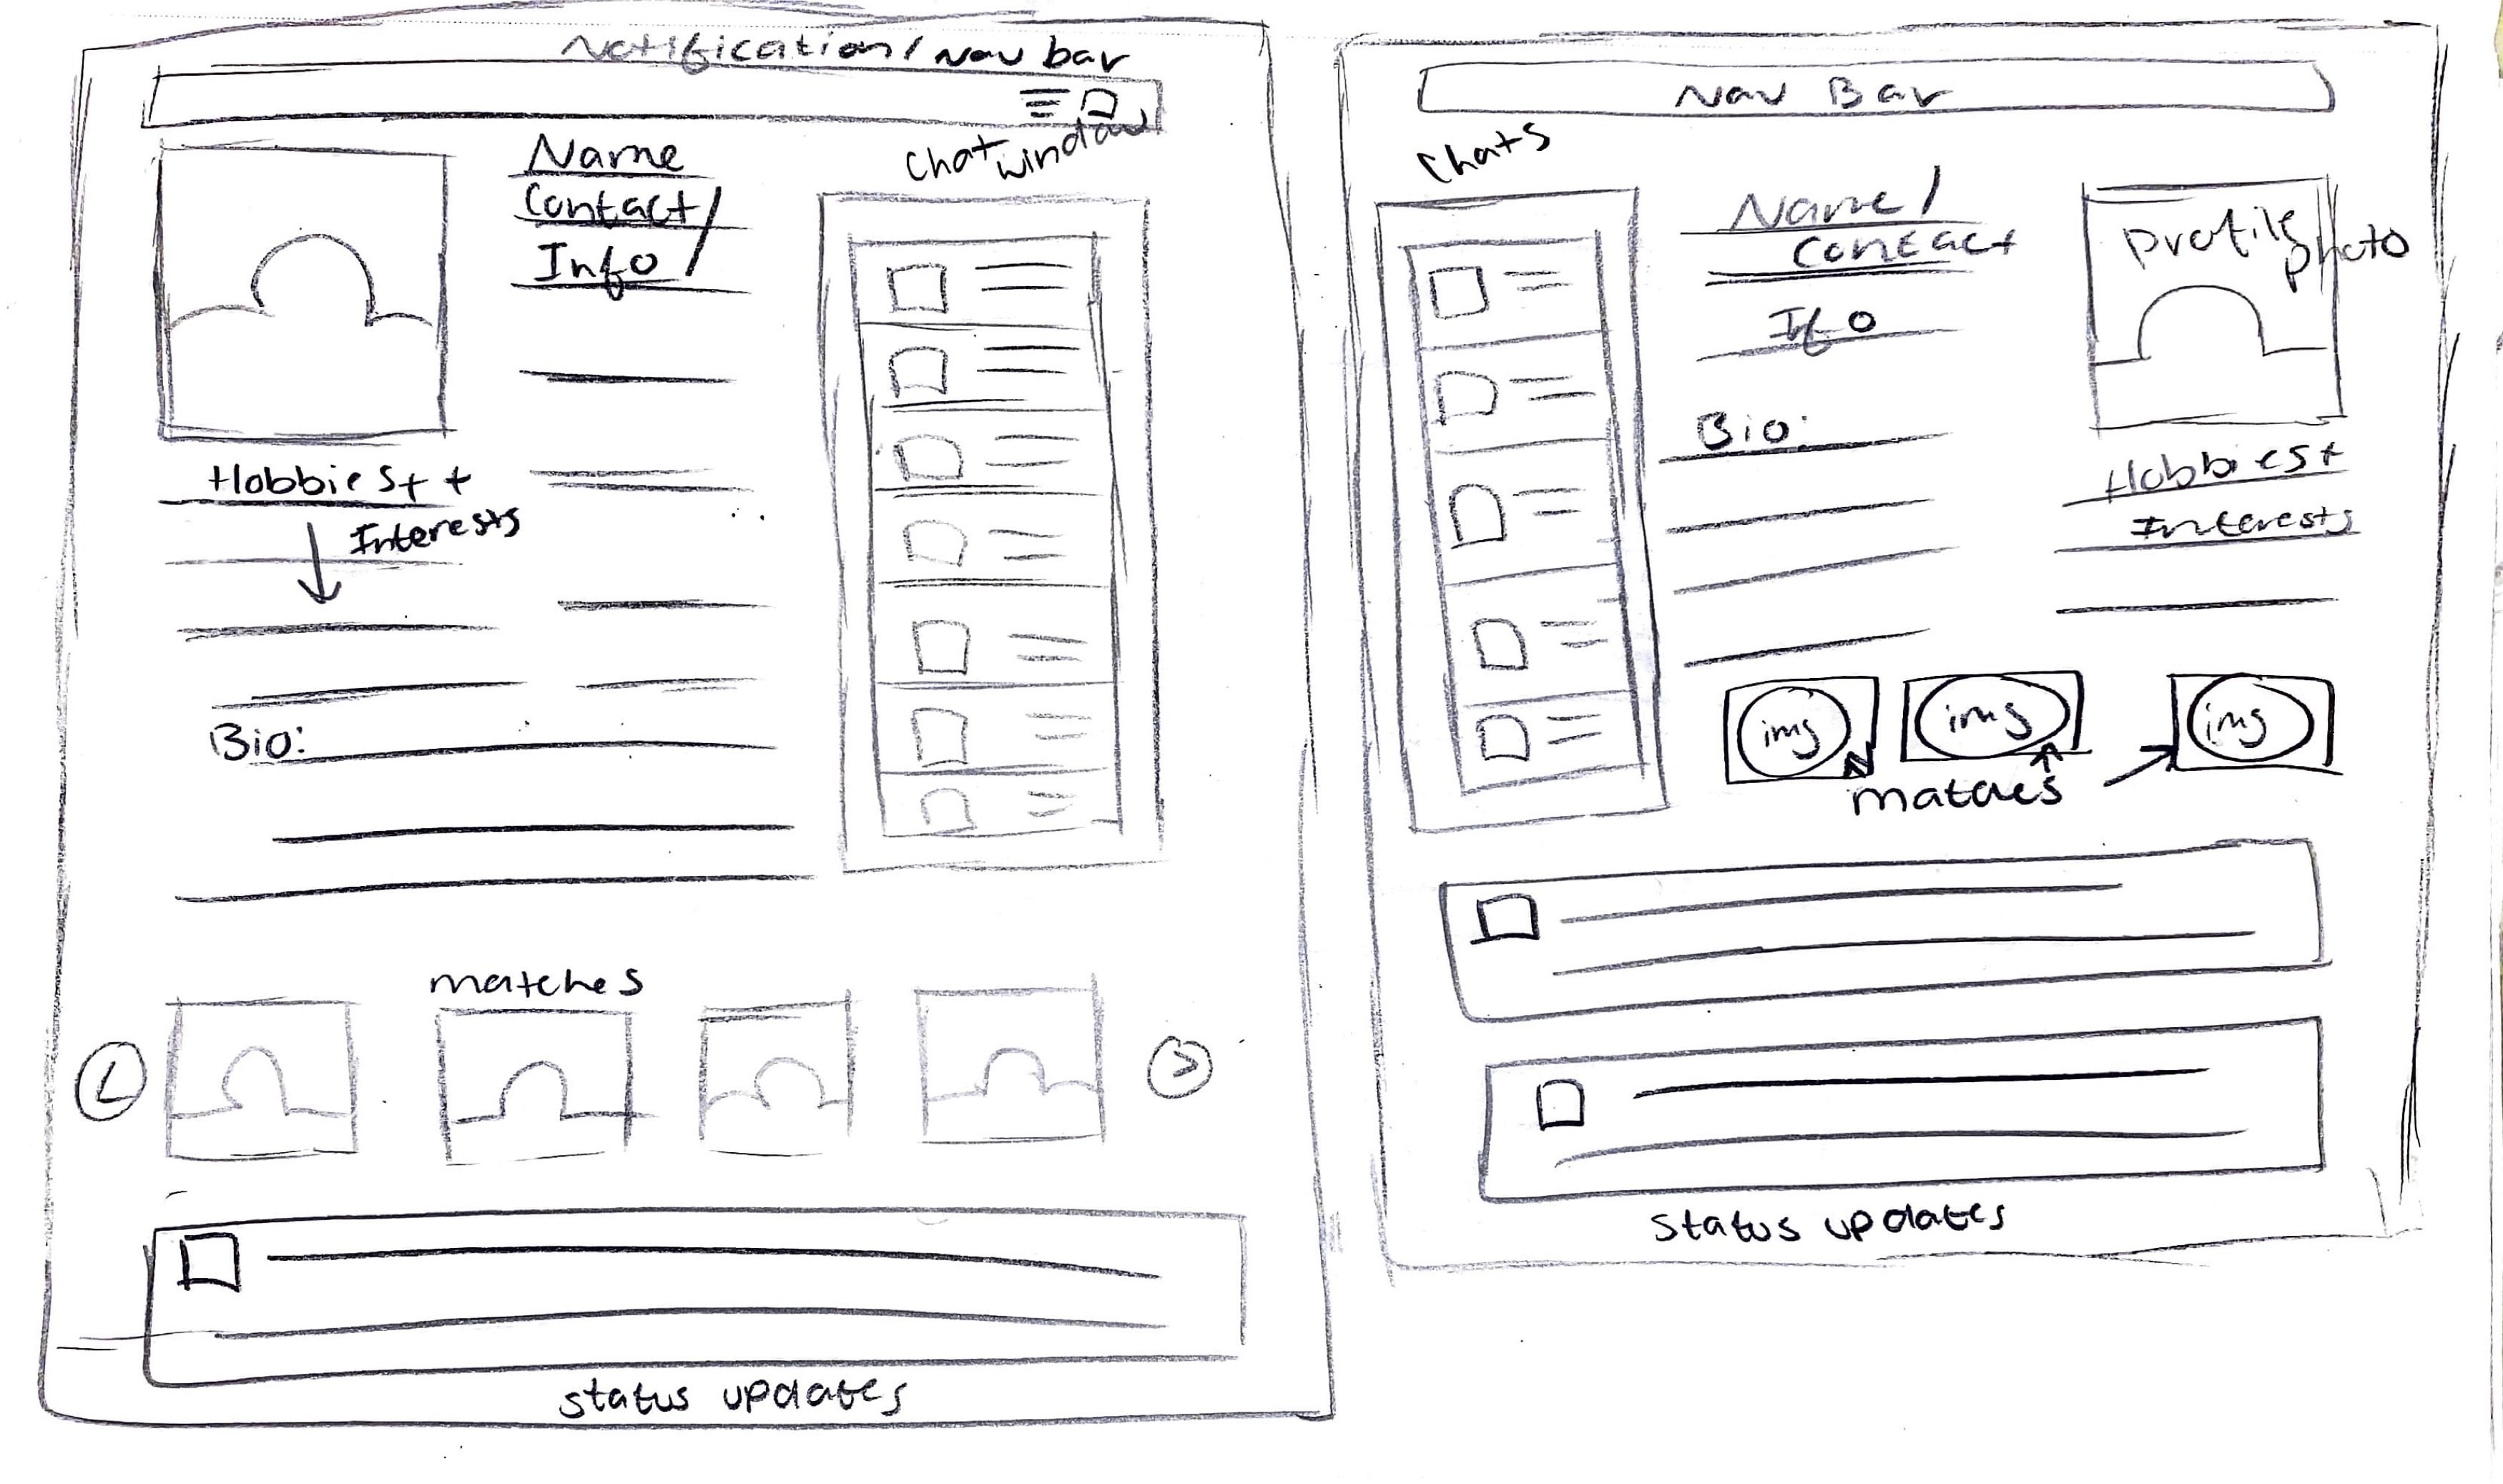 Notification/Nav bar
Chat window
Name
Contact/
Info/
Hobbies + +
Interests
Bio:
matches
status updates
Nav Bar
Chats
Name/
Contact
Ifo
profile
photo
Bio:
Hobbies +
Interests
img
img
img
matches
status updates